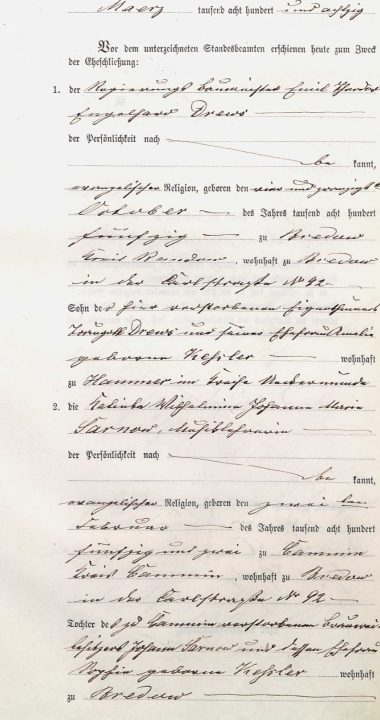 Maerz tausend acht hundert und achtzig
Vor dem unterzeichneten Standesbeamten erschienen heute zum Zweck
der Eheschließung:
1. der Regierungs Baumeister Emil Theodor
Engelhard Drews
der Persönlichkeit nach
be kannt,
evangelischer Religion, geboren den vier und zwanzigsten
October des Jahres tausend acht hundert
fünfzig zu Bredow
Kreis Randow, wohnhaft zu Bredow
in der Carlstraße No 92
Sohn des hier verstorbenen Eigenthümers
Drews und seiner Ehefrau Amalie
geborene Kessler wohnhaft
zu Hammer im Kreise Ueckermünde
2. die Wilhelmine Johanna Marie
Sarnow, Musiklehrerin
der Persönlichkeit nach
be kannt,
evangelischer Religion, geboren den zwei ten
Februar des Jahres tausend acht hundert
fünfzig und zwei zu Cammin
Kreis Cammin, wohnhaft zu Bredow
in der Carlstraße No 92
Tochter des zu Cammin verstorbenen
besitzers Johann Sarnow und dessen Ehefrau
Sophie geborene Kessler wohnhaft
zu Bredow